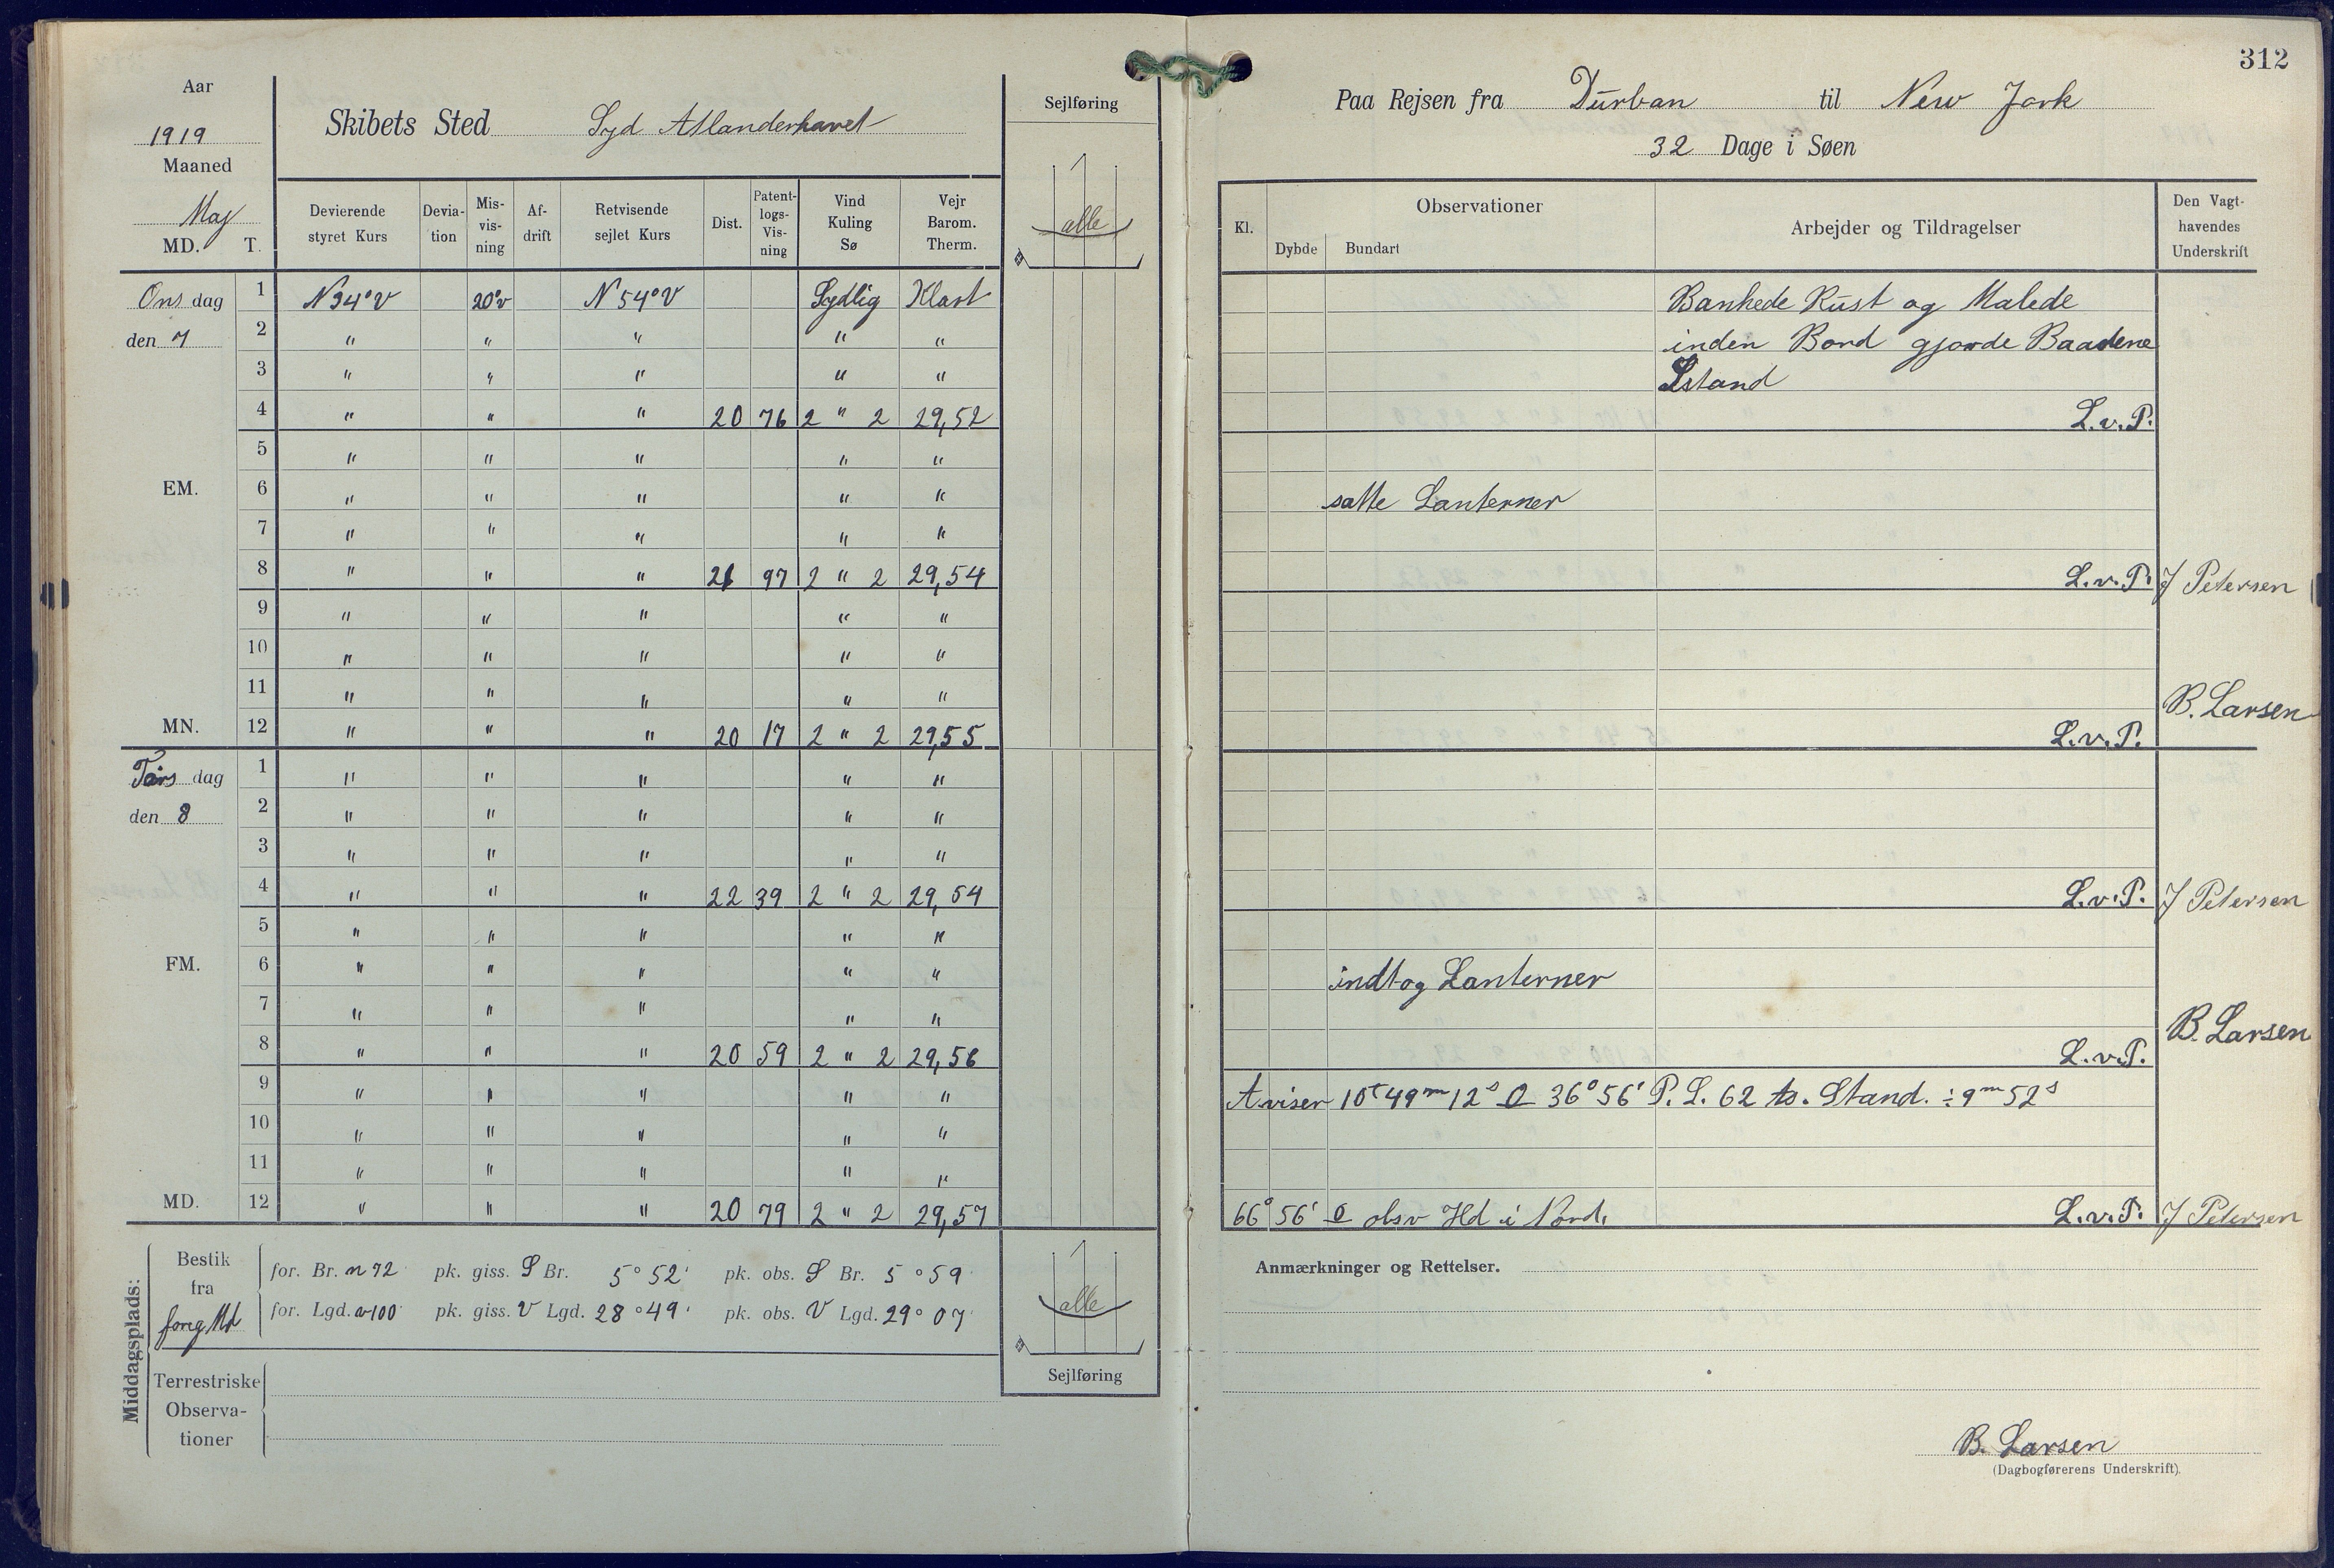 Aar
1919
Maaned
Maj
MD. T.
Skibets Sted Syd Atlanderhavet
Sejlføring
alle
Devierende styret Kurs Devia-tion Mis-vis-ning Af-drift Retvisende sejlet Kurs Dist. Patent-logs-Vis-ning Vind Kuling Sø Vejr Barom. Therm.
Onsdag 1 N34°V 20°v N54°V Sydlig Klart
den 7 2 " " " " "
3 " " " " "
4 " " " 20 76 2 " 2 29,52
5 " " " " "
EM. 6 " " " " "
7 " " " " "
8 " " " 21 97 2 " 2 29,54
9 " " " " "
10 " " " " "
11 " " " " "
MN. 12 " " " 20 17 2 " 2 29,55
Torsdag 1 " " " " "
den 8 2 " " " " "
3 " " " " "
4 " " " 22 39 2 " 2 29,54
5 " " " " "
FM. 6 " " " " "
7 " " " " "
8 " " " 20 59 2 " 2 29,56
9 " " " " "
10 " " " " "
11 " " " " "
MD. 12 " " " 20 79 2 " 2 29,57
Middagsplads:
Bestik fra foreg Md
for. Br. n 72 pk. giss. S Br. 5°52' pk. obs. S Br. 5°59'
for. Lgd. v 100' pk. giss. V Lgd. 28°49' pk. obs. V Lgd. 29°07'
Terrestriske Observa-tioner
alle
Sejlføring
312
Paa Rejsen fra Durban til New Jork
32 Dage i Søen
Kl. Observationer Arbejder og Tildragelser Den Vagt-havendes Underskrift
Dybde Bundart
Bankede Rust og Malede
inden Bord gjorde Baadene
Istand
L.v.P.
satte Lanterner
L.v.P. J Petersen
B. Larsen
L.v.P.
L.v.P. J Petersen
indtog Lanterner
B. Larsen
L.v.P.
A.viser 10t49m12s O 36°56' P.L. 62 ts. Stand. ÷9m52s
66°56' O obsv Hd i Nord. L.v.P. J Petersen
Anmærkninger og Rettelser.
B. Larsen
(Dagbogførerens Underskrift).